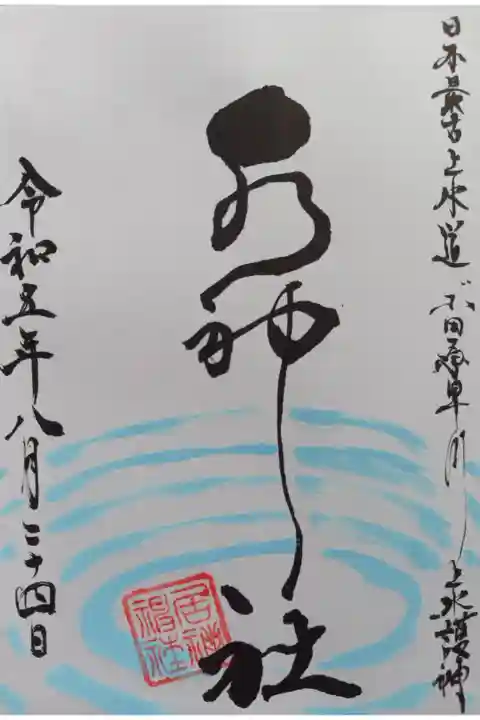 日本最古上水道 小田原早川上水護神
水神社
居神
神社
令和五年八月二十四日